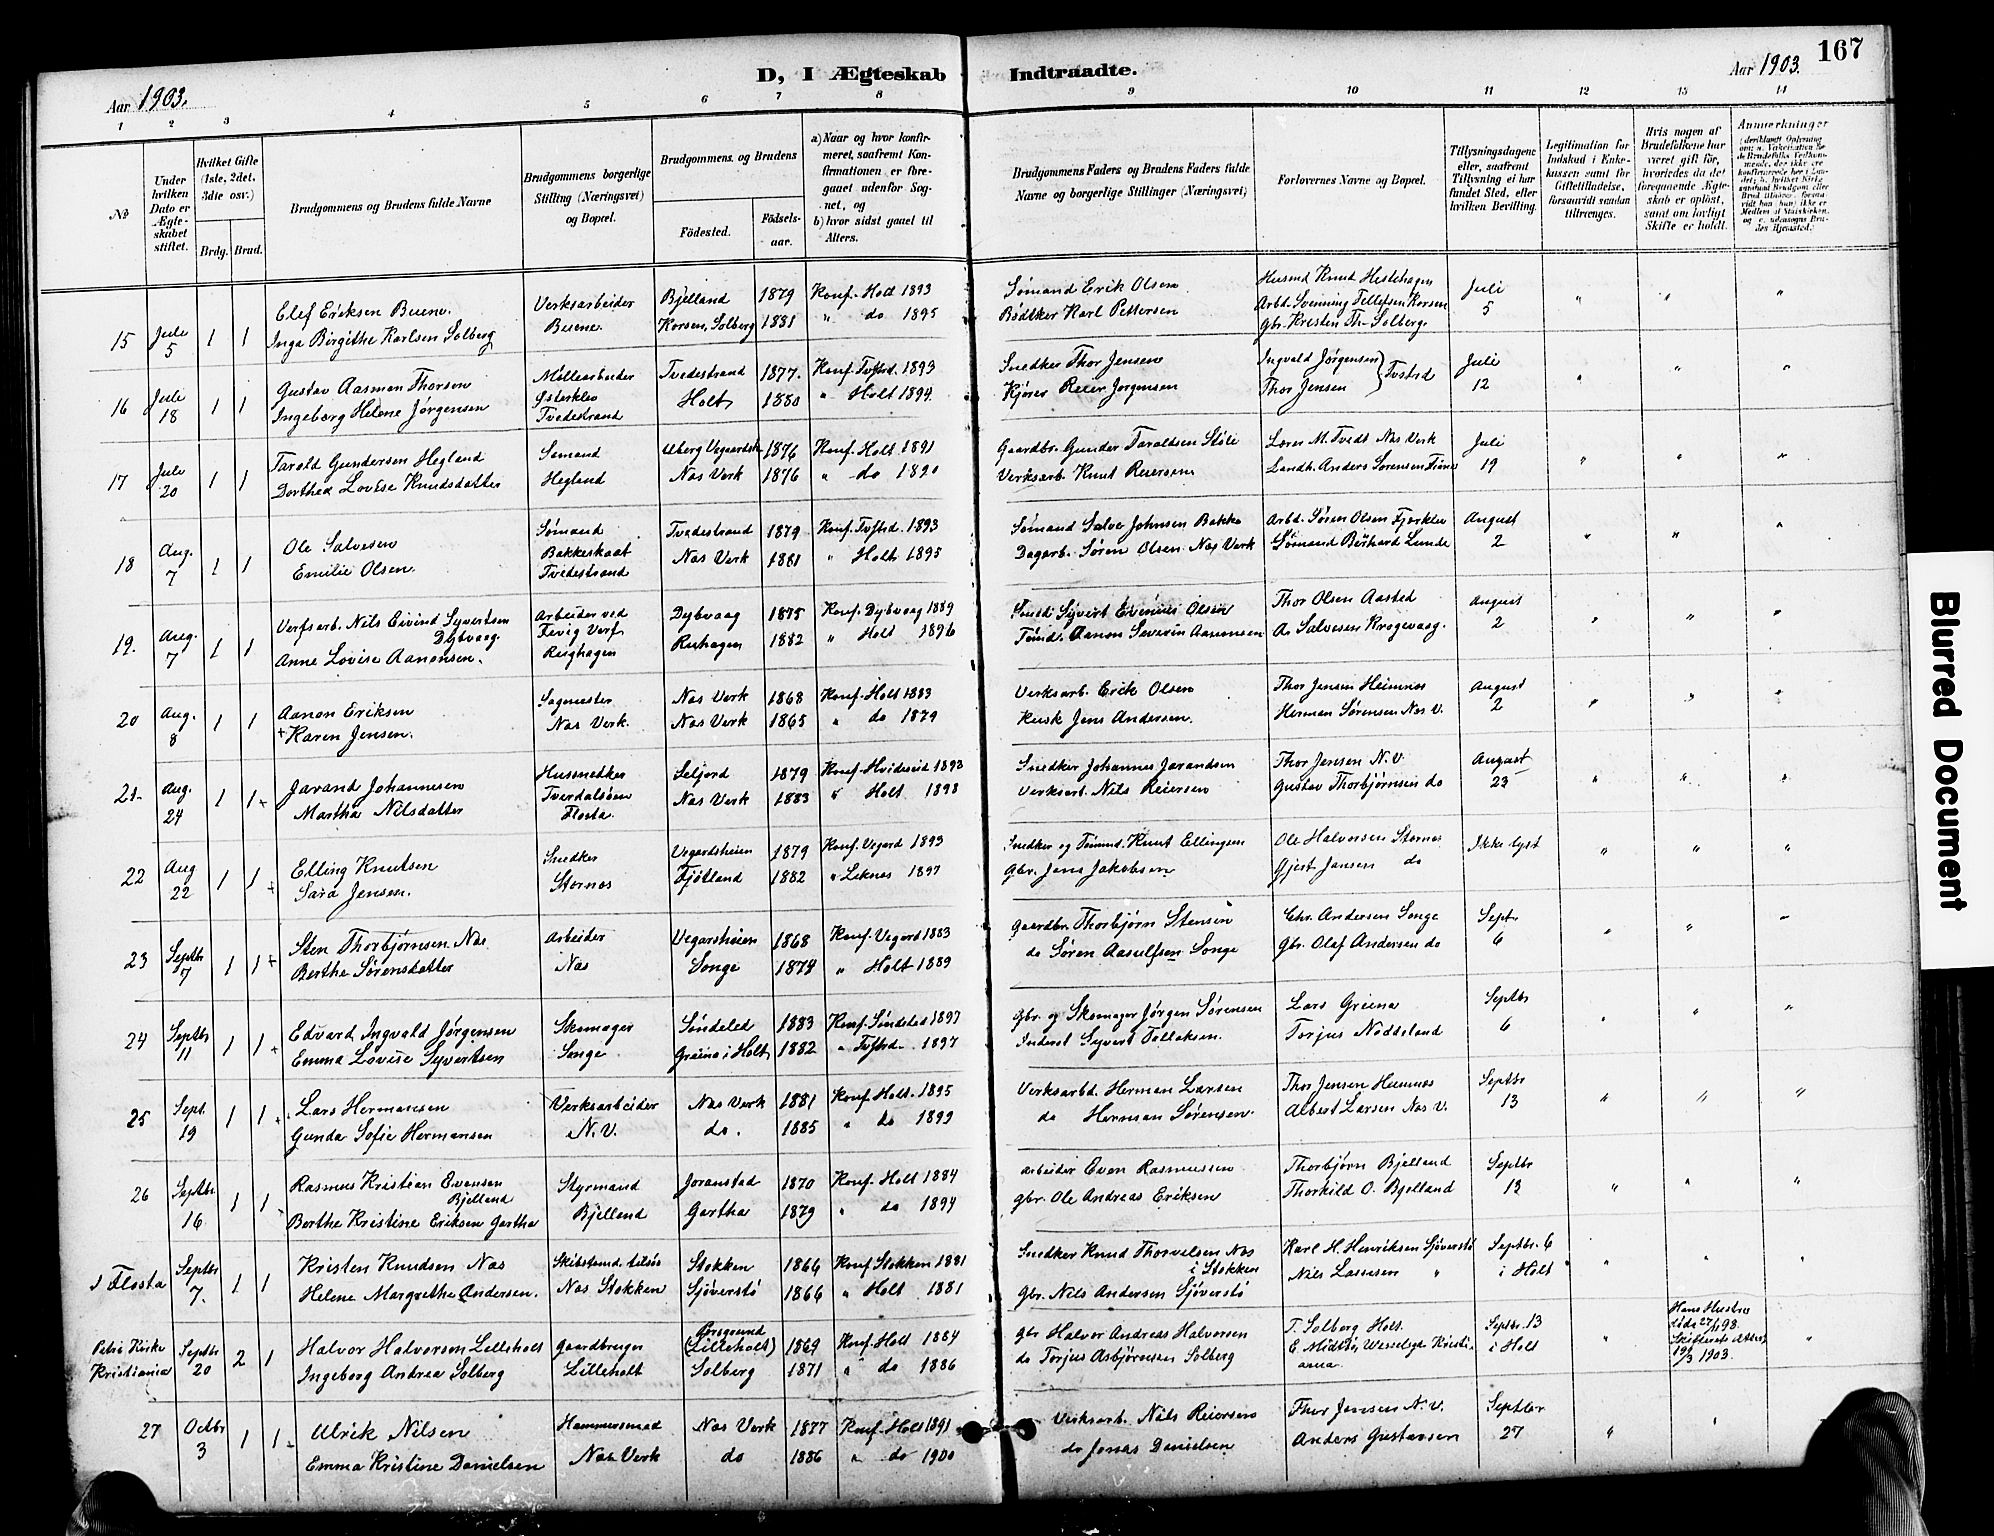 167
D, I Ægteskab Indtraadte.
Aar 1903.
Aar 1903.
1 2 3 4 5 6 7 8 9 10 11 12 13 14
No
Under hvilken Dato er Ægteskabet stiftet.
Hvilket Gifte (1ste, 2det, 3die osv.)
Brdg. Brud.
Brudgommens og Brudens fulde Navne
Brudgommens borgerlige Stilling (Næringsvei) og Bopæl.
Brudgommens og Brudens
Fødested.
Fødselsaar.
a) Naar og hvor konfirmeret, saafremt Konfirmationen er foregaaet udenfor Sognet, og
b) hvor sidst gaaet til Alters.
Brudgommens Faders og Brudens Faders fulde Navne og borgerlige Stillinger (Næringsvei)
Forlovernes Navne og Bopæl.
Tillysningsdagene eller, saafremt Tillysning ei har fundet Sted, efter hvilken Bevilling.
Legitimation for Indskud i Enkekassen samt for Giftetilladelse, forsaavidt saadan tiltrænges.
Hvis nogen af Brudefolkene har været gift før, hvorledes da det foregaaende Ægteskab er opløst, samt om lovligt Skifte er holdt.
Anmerkninger
15 Juli 5 1 1 Eriksen Buene. Verksarbeider Bjelland 1879 Konf. Holt 1893 Sømand Erik Olsen Husmd Knud Juli 5
Inga Birgithe Karlsen Solberg Buene. Korsen, Solberg 1881 " do 1895 Bødtker Karl Pettersen Arbd. Svenning Tellefsen Korsen
gbr. Kristen Th. Solberg.
16 Juli 18 1 1 Gustav Aasman Thorsen Møllearbeider Tvedestrand 1877. Konf. Tvstrd. 1893 Snedker Thor Jensen Ingvald Jørgensen Tvstrd Juli 12
Ingeborg Helene Jørgensen Østerklev Tvedestrand Holt 1880 " Holt 1894. Kjører Reier Jørgensen Thor Jensen
17 Juli 20 1 1 Tarald Gundersen Hegland Sømand 1876 Konf. Holt 1891 Gaardbr. Gunder Taraldsen Støle M. Tvedt Nas Verk Juli 19
Dorthea Lovise Knudsdatter Hegland Nas Verk 1876 " do 1890 Verksarb. Knut Reiersen Landh. Anders Sørensen
18 Aug. 7 1 1 Ole Salvesen Sømand Tvedestrand 1879 Konf. Tvstrd. 1893 Sømand Salve Johnsen Bakke Arbd. Søren Olsen August 2
Emilie Olsen. Bakkeskaat Tvedestrand Nas Verk 1881 " Holt 1895 Dagarb. Søren Olsen Nas Verk Sømand Lunde
19. Aug. 7 1 1 Verfsarb. Nils Eivind Syvertsen Dybvaag. Arbeider ved Fevig Verf Dybvaag 1875 Konf. Dybvaag 1889 Syvert Olsen Thor Olsen Aasted August 2
Anne Lovise Aanonsen. 1882 " Holt 1896 Tømd. Aanon Severin Aanonsen A. Salvesen Krogevaag.
20 Aug. 8 1 1 Aanon Eriksen Sagmester Nas Verk 1868 Konf. Holt 1883 Verksarb. Erik Olsen Thor Jensen August 2
+ Karen Jensen. Nas Verk. Nas Verk 1865 " do 1879 Jens Andersen. Herman Sørensen Nas V.
21. Aug. 24 1 1 + Jarand Johannesen Hussnedker Seljord 1879 Konf. Hvideseid 1893 Snedker Johannes Jarandsen Thor Jensen N.V. August 23
Martha Nilsdatter Tverdalsøen Flosta. Nas Verk 1883 " Holt 1898 Verksarb. Nils Reiersen Gustav Thorbjørnsen do
22 Aug 22 1 1 + Elling Knutsen Snedker Vegardsheien 1879 Konf. Vegard 1893 Snedker og Tømmd. Knut Ellingsen Ole Halvorsen Stornes Ikke lyst
Sara Jensen. Stornæs Fjotland 1882 " 1897 Gbr. Jens Jakobsen Gjest Jansen do
23 Septbr 7 1 1 + Sten Thorbjørnsen Nas Arbeider Vegarsheien 1868 Konf. Vegard 1883 Gaardbr. Thorbjørn Stensen Chr. Andersen Songe Septr. 6
Berthe Sørensdatter Nas Songe 1874 " Holt 1889 do Søren Aasulfsen Songe Gbr. Olaf Andersen do
24 Septbr 11 1 1 + Edvard Ingvald Jørgensen Skomager Søndeled 1883 Konf. Søndeled 1897 Gbr. og Skomager Jørgen Sørensen Lars Greina Septbr 6
Emma Lovise Syvertsen Songe Greina i Holt 1882 " Tvstrd. 1897 Inderst Syvert Tellefsen. Torjus Nøddeland
25 Sept. 19 1 1 + Lars Hermansen Verksarbeider Nas Verk 1881 Konf. Holt. 1895 Verksarbd. Herman Larsen Thor Jensen Septbr 13
Gunda Sofie Hermansen N.V. do. 1885 " do 1899 do Herman Sørensen. Albert Larsen Nas V.
26 Septbr 16 1 1 Rasmus Kristian Evensen Bjelland Styrmand Joranstad 1870 Konf. Holt 1884 Arbeider Even Rasmussen Thorbjørn Bjelland Septbr 13
Berthe Kristine Eriksen Gartha Bjelland Gartha 1879 " do 1894 Gbr. Ole Andreas Eriksen Thorkild O. Bjelland
I Flosta Septbr 7. 1 1 Kristen Knudsen Nas Skibstmd. tilsøs Stokken 1864 Konf. Stokken 1881 Snedker Knud Thorvelsen Nas i Stokken Karl H. Henriksen Sjøverstø Septbr. 6 i Holt
Helene Margrethe Andersen. Nas Stokken Sjøverstø 1866 " Holt 1881 Gbr. Nils Andersen Sjøverstø Nils Larssen "
Petri Kirke Kristiania Septbr 20 2 1 Halvor Halvorsen Lilleholt Gaardbruger Porsgrund (Lilleholt) 1869 Konf. Holt 1884 Gbr Halvor Andreas Halvorsen T. Solberg Holt. Septr. 13 i Holt Hans Hustru døde 27/1 98. Skifterets Attest 19/3 1903.
Ingeborg Andrea Solberg Lilleholt Solberg 1871 " do 1886 do Torjus Asbjørnsen Solberg E. Kristiania.
27 Octbr 3 1 1 Ulrik Nilsen Hammersmed Nas Verk 1877 Konf. Holt 1891 Verksarb. Nils Reiersen Thor Jensen N.V. Septbr 27
Emma Kristine Danielsen Nas Verk do 1886 " do 1900 do Jonas Danielsen Anders Gustavsen
Blurred Document